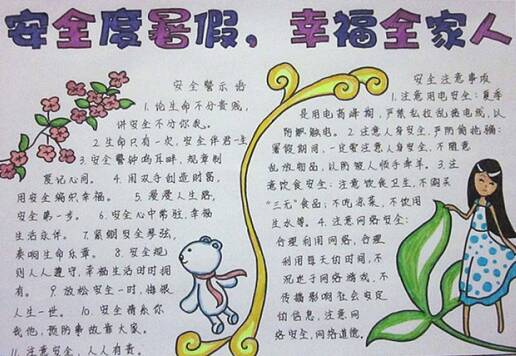 安全度暑假，幸福全家人
安全警示语
1.论生命不分贵贱，
讲安全不分你我。
2.生命只有一次，安全伴君一生
3.安全警钟鸣耳畔，规章制
度记心间。 4.用双手创造财富，
用安全编织幸福。 5.漫漫人生路，
安全第一步。 6.安全心中常驻，幸福
生活永伴。 7.紧绷安全琴弦，
奏响生命乐章。 8.安全规
则人人遵守，幸福生活时时拥
有。 9.放松安全一时，悔恨
人生一世。 10.安全情系你
我他，预防事故靠大家。
11.注意安全，人人有责。
安全注意事项
1.注意用电安全：夏季
是用电高峰期，严禁私拉乱接电线，以
防触电。 2.注意人身安全，严防
暑假期间，一定要注意人身安全，不随意
乱放物品，以防被人顺手牵羊。 3.注
意饮食安全：注意饮食卫生，不购买
“三无”食品；不吃凉菜，不饮用
生水等。 4.注意网络安全：
合理利用网络，合理
利用每天的时间，不
沉迷于网络游戏，不
传播影响社会安定
的信息，注意网
络安全，网络道德。